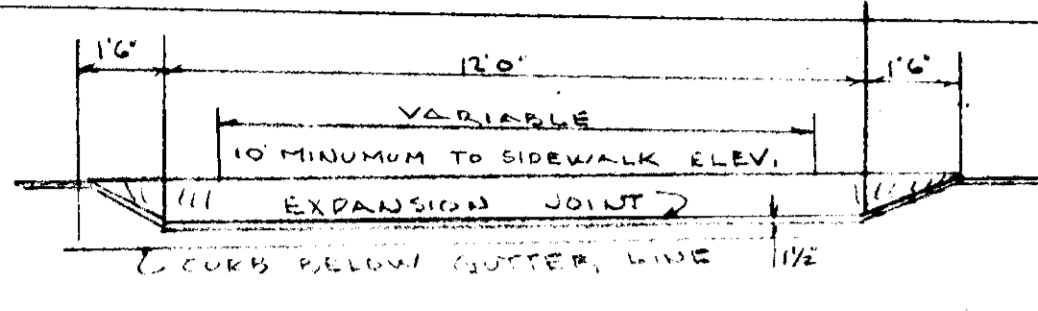 1'6" 12'0" 1'6"
VARIABLE
10' MINUMUM TO SIDEWALK ELEV.
EXPANSION JOINT
CURB BELOW GUTTER LINE 1 1/2"